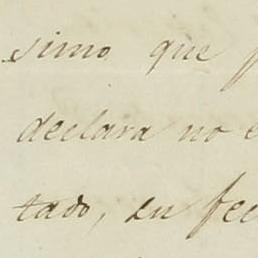 simo que
declara no
tado, en fec